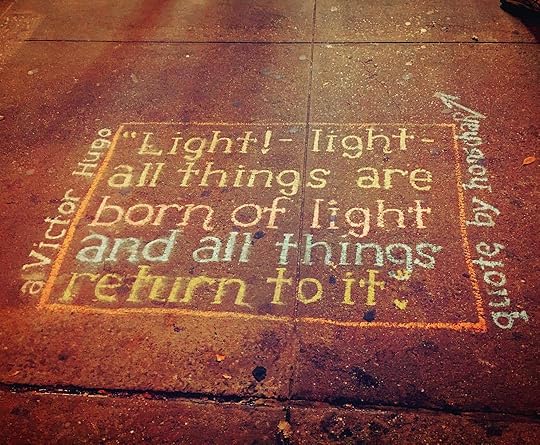 "Light! - light -
all things are
born of light
and all things
return to it"
a Victor Hugo
quote by hanschan